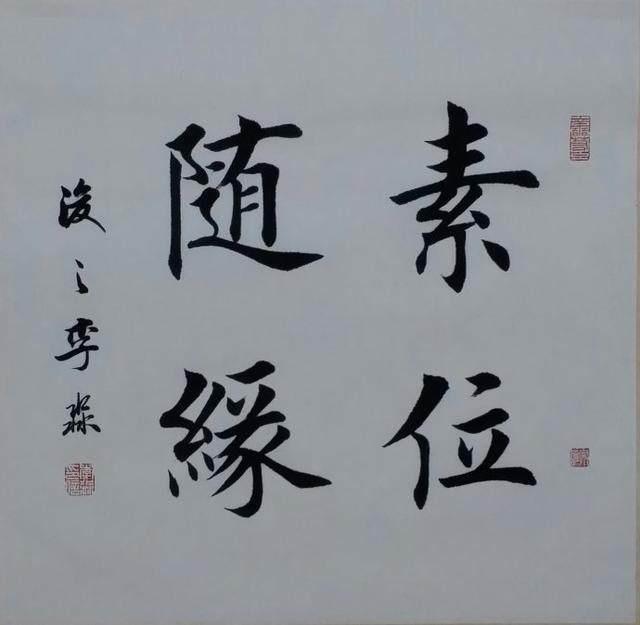 素位
随緣
浚之李淼